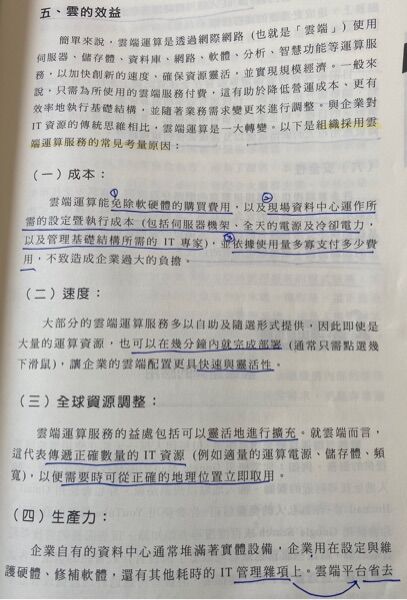 五、雲的效益
簡單來說，雲端運算是透過網際網路 (也就是「雲端」) 使用
伺服器、儲存體、資料庫、網路、軟體、分析、智慧功能等運算服
務，以加快創新的速度、確保資源靈活，並實現規模經濟。一般來
說，只需為所使用的雲端服務付費，這有助於降低營運成本、更有
效率地執行基礎結構，並隨著業務需求變更來進行調整。與企業對
IT 資源的傳統思維相比，雲端運算是一大轉變。以下是組織採用雲
端運算服務的常見考量原因：
(一) 成本：
① ②
雲端運算能免除軟硬體的購買費用，以及現場資料中心運作所
需的設定暨執行成本 (包括伺服器機架，全天的電源及冷卻電力，
③
以及管理基礎結構所需的 IT 專家)，並依據使用量多寡支付多少費
用，不致造成企業過大的負擔。
(二) 速度：
大部分的雲端運算服務多以自助及隨選形式提供，因此即使是
大量的運算資源，也可以在幾分鐘內就完成部署 (通常只需點選幾
下滑鼠)，讓企業的雲端配置更具快速與靈活性。
(三) 全球資源調整：
雲端運算服務的益處包括可以靈活地進行擴充。就雲端而言，
這代表傳遞正確數量的 IT 資源 (例如適量的運算電源、儲存體、頻
寬)，以便需要時可從正確的地理位置立即取用。
(四) 生產力：
企業自有的資料中心通常堆滿著實體設備，企業用在設定與維
護硬體、修補軟體，還有其他耗時的 IT 管理雜項上。雲端平台省去